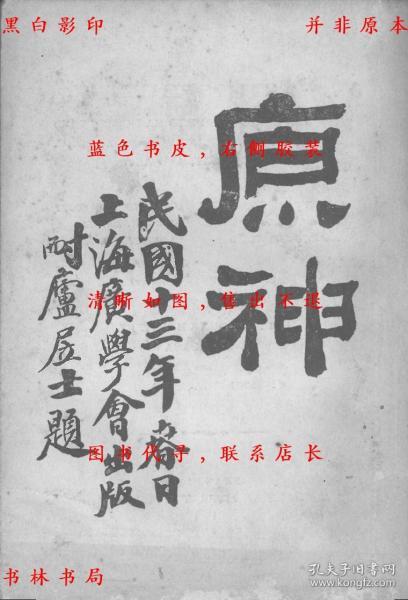 黑白影印
并非原本
原神
蓝色书皮，右侧胶装
民國十三年春日
上海廣學會出版
耐廬居士題
清晰如图，售出不退
图书代寻，联系店长
书林书局
孔夫子旧书网